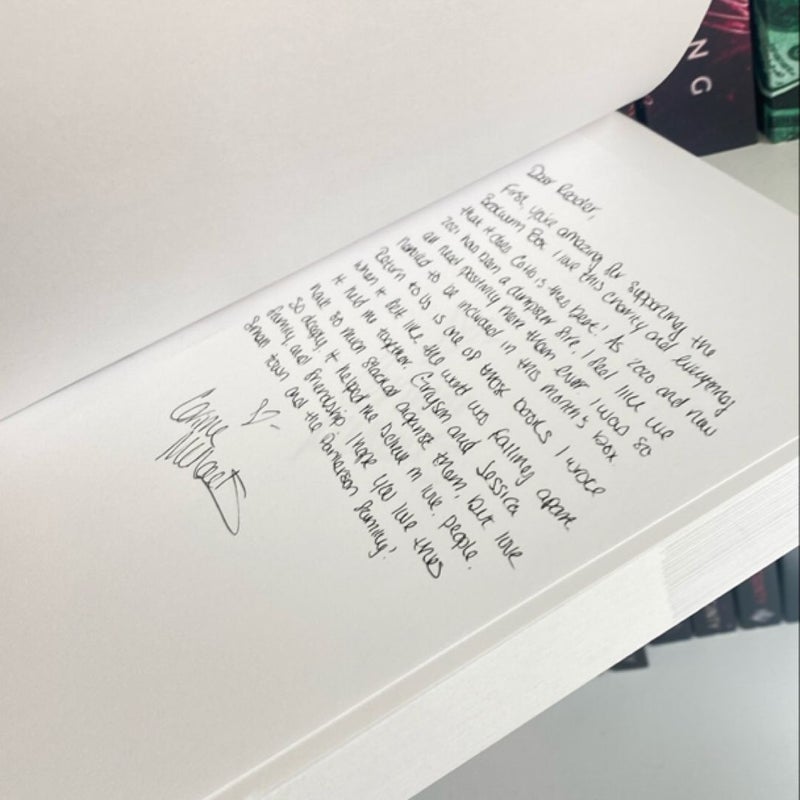 NG
Dear Reader,
First, you're amazing for supporting the
Bookworm Box. I love this charity and everything
that it does. Colleen is the best! As 2020 and now
2021 has been a dumpster fire, I feel like we
all need positivity more than ever. I was so
honored to be included in this month's box.
Return to Us is one of those books I wrote
when it felt like the world was falling apart.
It held me together. Grayson and Jessica
have so much stacked against them, but love
so deeply. It helped me believe in love, people,
family, and friendship. I hope you love this
small town and the Parkerson family!
Corinne
Michaels